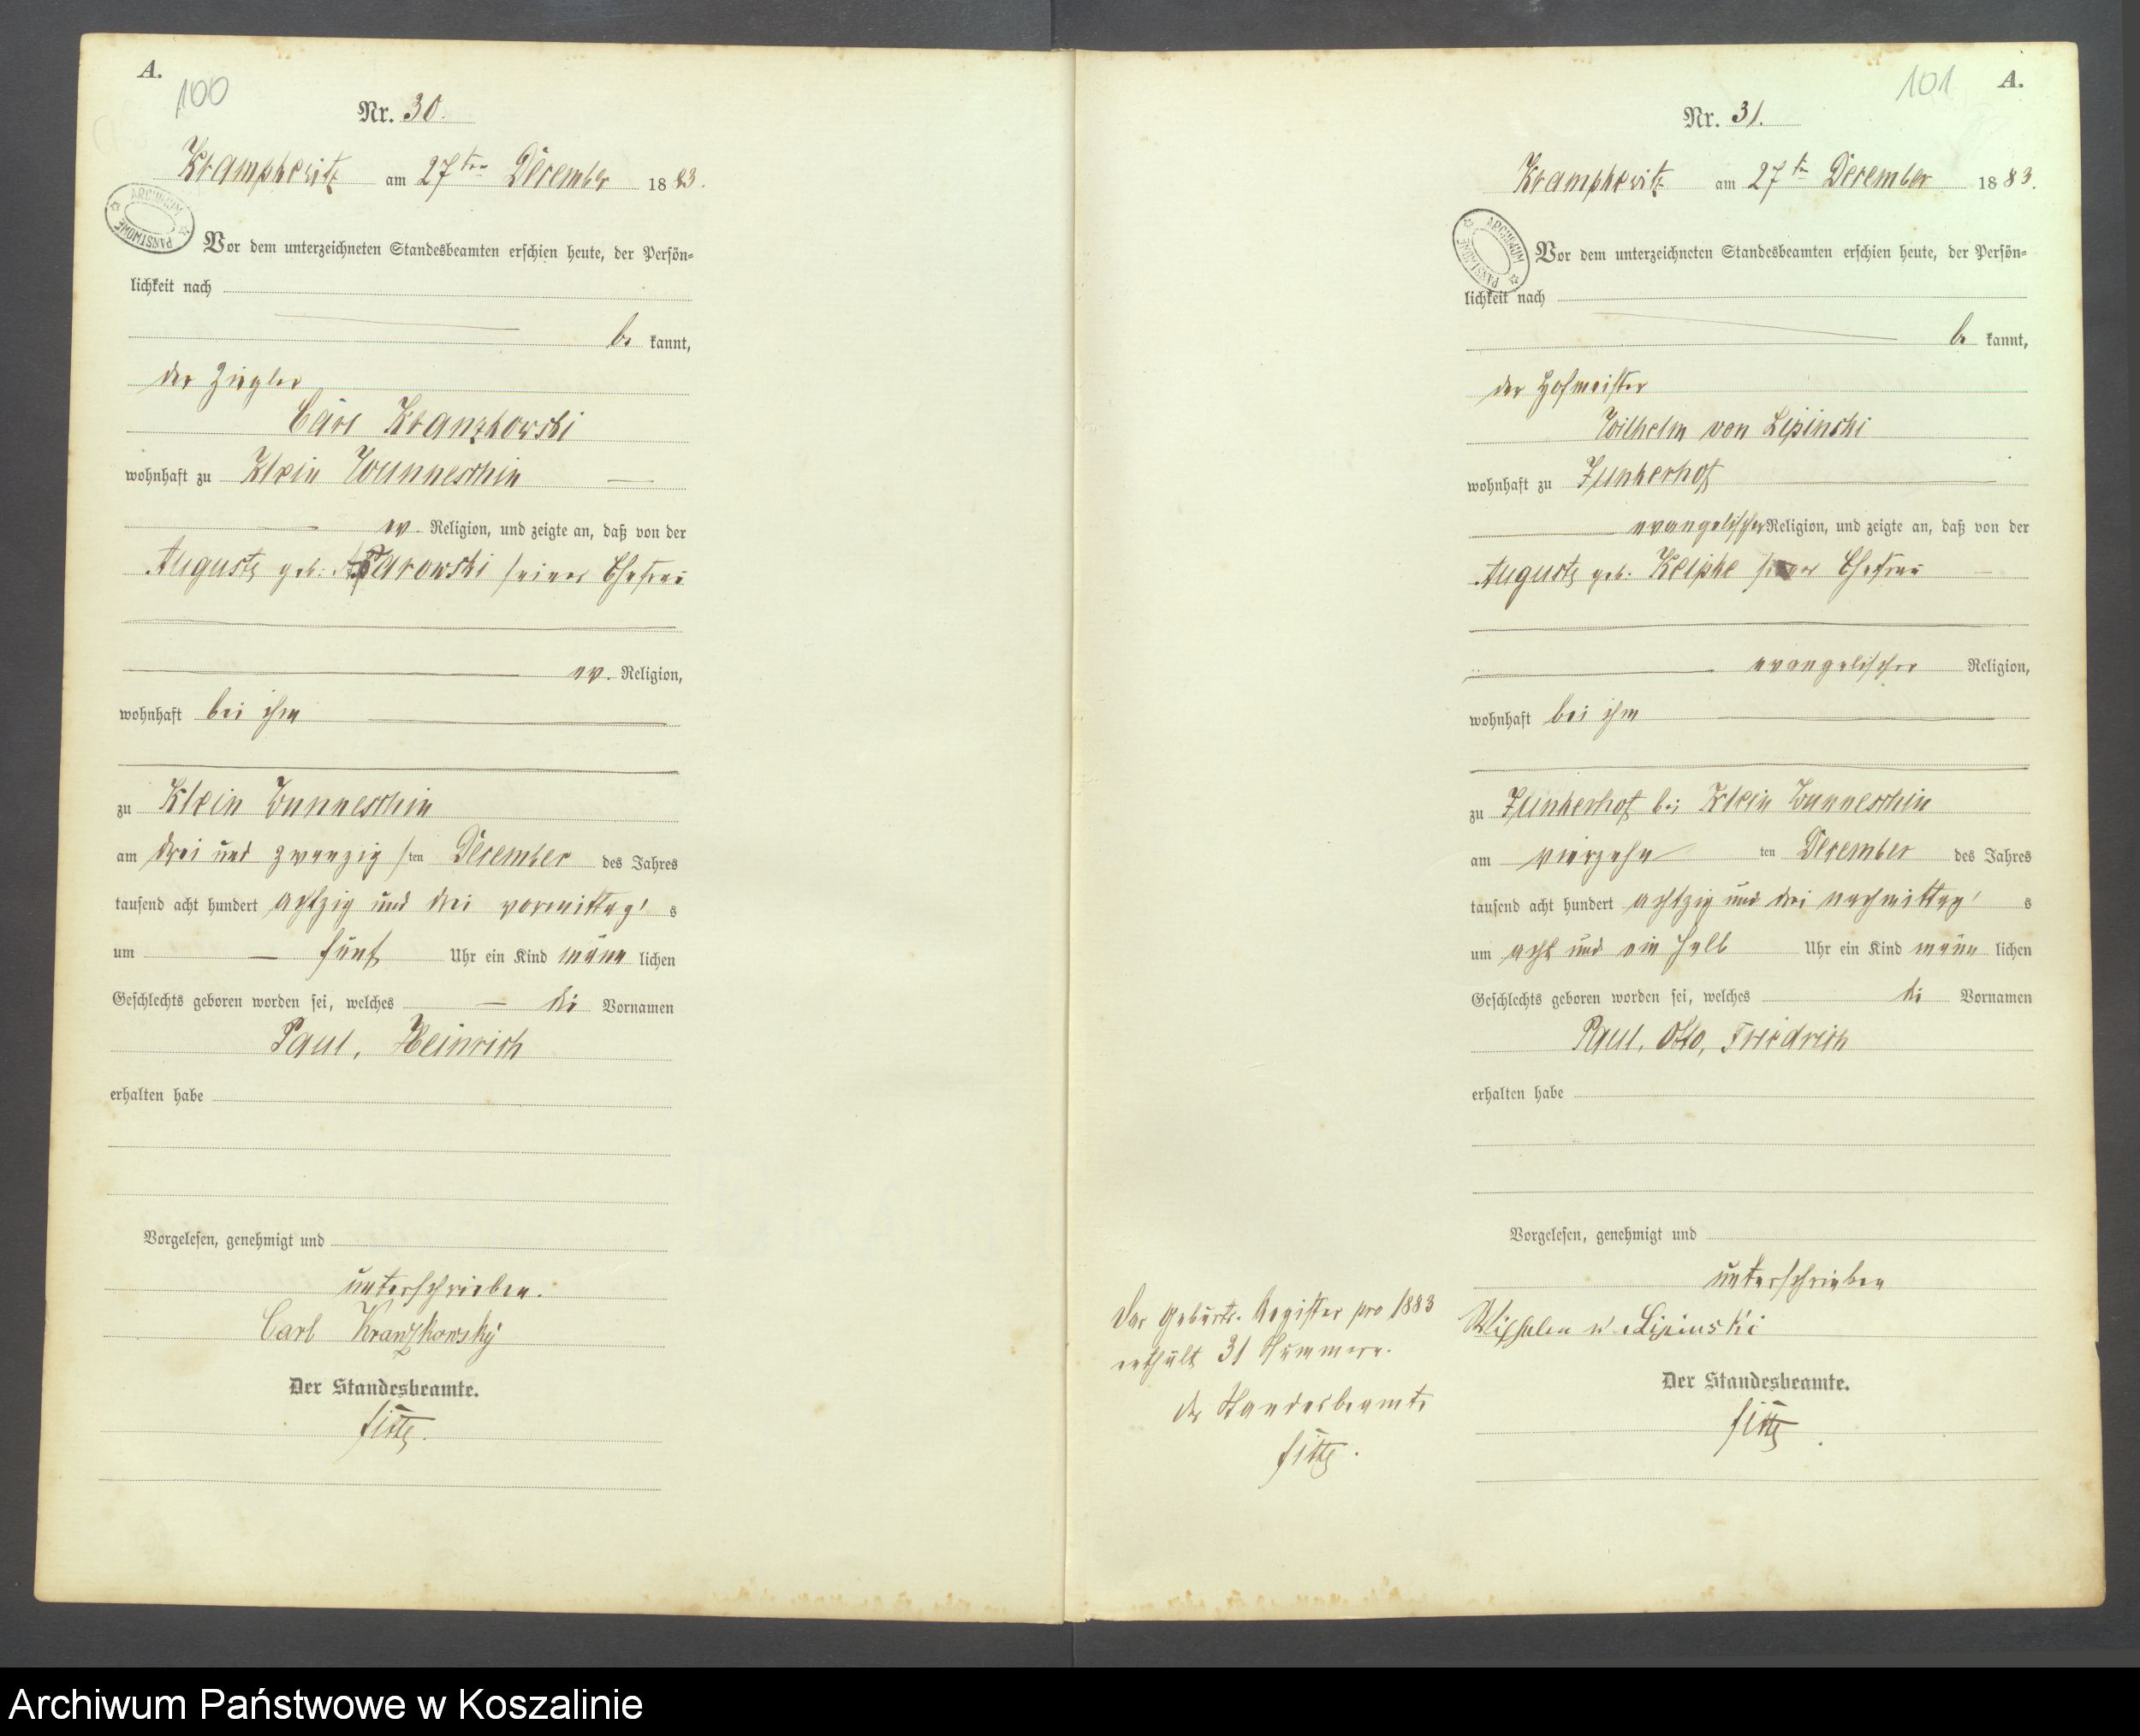 A.
100
Nr. 30.
Krampkewitz am 27ten December 1883.
ARCHIWUM PAŃSTWOWE
Vor dem unterzeichneten Standesbeamten erschien heute, der Persön-
lichkeit nach
be kannt,
der Ziegler
Carl Kranzkowski
wohnhaft zu Klein Wunneschin
ev. Religion, und zeigte an, daß von der
Auguste geb. seiner Ehefrau
ev. Religion,
wohnhaft bei ihm
zu Klein Wunneschin
am drei und zwanzig sten December des Jahres
tausend acht hundert achtzig und drei vormittag s
um fünf Uhr ein Kind männ lichen
Geschlechts geboren worden sei, welches die Vornamen
Paul, Heinrich
erhalten habe
Vorgelesen, genehmigt und
unterschrieben.
Carl Kranzkowsky
Der Standesbeamte.
101
A.
Nr. 31.
Krampkewitz am 27ten December 1883.
ARCHIWUM PAŃSTWOWE
Vor dem unterzeichneten Standesbeamten erschien heute, der Persön-
lichkeit nach
be kannt,
der Hofmeister
Wilhelm von Lipinski
wohnhaft zu Junkerhof
evangelischer Religion, und zeigte an, daß von der
Auguste geb. Kelpke seiner Ehefrau
evangelischer Religion,
wohnhaft bei ihm
zu Junkerhof bei Klein Wunneschin
am vierzehn ten December des Jahres
tausend acht hundert achtzig und drei nachmittag s
um acht und ein halb Uhr ein Kind männ lichen
Geschlechts geboren worden sei, welches die Vornamen
Paul, Otto, Friedrich
erhalten habe
Vorgelesen, genehmigt und
unterschrieben
Wilhelm v. Lipinski
Der Standesbeamte.
Das Geburts-Register pro 1883
enthält 31 Nummern.
Der Standesbeamte
Archiwum Państwowe w Koszalinie